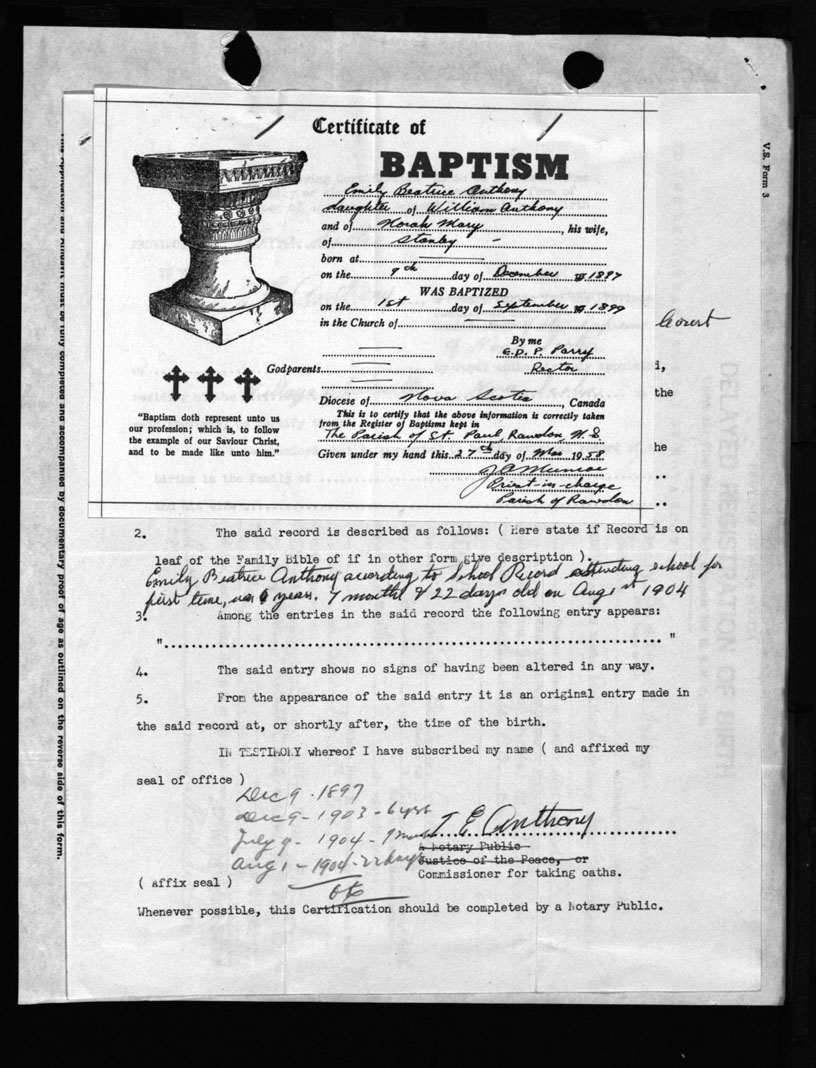 Certificate of
BAPTISM
Emily Beatrice Anthony
daughter of William Anthony
and of Norah Mary, his wife,
of Stanley
born at
on the 9th day of December 1897
WAS BAPTIZED
on the 1st day of September 1899
in the Church of
By me
E.D.P. Parry
Rector
Godparents
Diocese of Nova Scotia, Canada
This is to certify that the above information is correctly taken
from the Register of Baptisms kept in
The Parish of St. Paul, Rawdon N.S.
Given under my hand this 27th day of Mar 1958
Priest-in-charge
Parish of Rawdon
"Baptism doth represent unto us
our profession; which is, to follow
the example of our Saviour Christ,
and to be made like unto him."
V.S. Form 3
the
he
births in the family of
2. The said record is described as follows: ( Here state if Record is on
leaf of the Family Bible of if in other form give description ).
Emily Beatrice Anthony according to School Record attending school for
first time, was 6 years, 7 months & 22 days old on Aug 1st 1904
3. Among the entries in the said record the following entry appears:
"........................................................................ "
4. The said entry shows no signs of having been altered in any way.
5. From the appearance of the said entry it is an original entry made in
the said record at, or shortly after, the time of the birth.
IN TESTIMONY whereof I have subscribed my name ( and affixed my
seal of office )
Dec 9 - 1897
Dec 9 - 1903 - 6 yrs
July 9 - 1904 - 7 mos
Aug 1 - 1904 - 22 days
OK
T E Anthony
A Notary Public
Justice of the Peace, or
Commissioner for taking oaths.
( Affix seal )
Whenever possible, this Certification should be completed by a Notary Public.
must be fully completed and accompanied by documentary proof of age as outlined on the reverse side of this form.